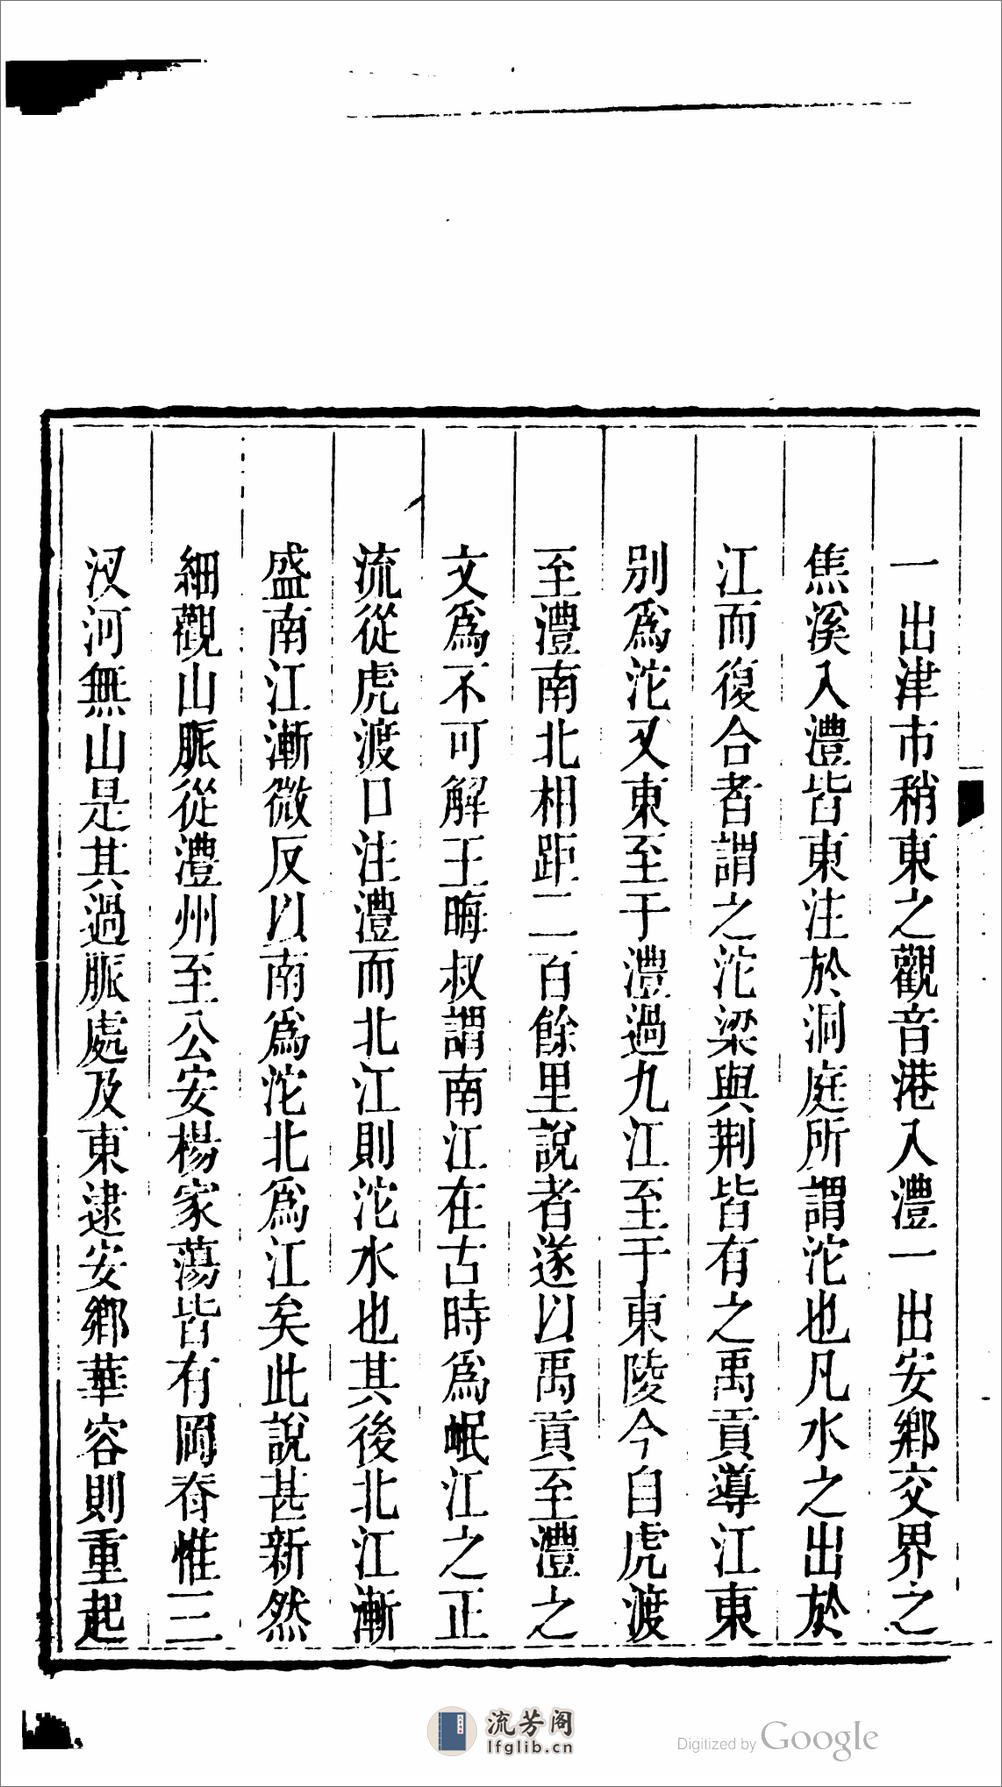 一出津市稍東之觀音港入澧一出安鄉交界之
焦溪入澧皆東注於洞庭所謂沱也凡水之出於
江而復合者謂之沱梁與荆皆有之禹貢導江東
別爲沱又東至于澧過九江至于東陵今自虎渡
至澧南北相距二百餘里說者遂以禹貢至澧之
文爲不可解王晦叔謂南江在古時爲岷江之正
流從虎渡口注澧而北江則沱水也其後北江漸
盛南江漸微反以南爲沱北爲江矣此說甚新然
細觀山脈從澧州至公安楊家蕩皆有岡脊惟三
汊河無山是其過脈處及東逮安鄉華容則重起
流芳阁
lfglib.cn
Digitized by Google